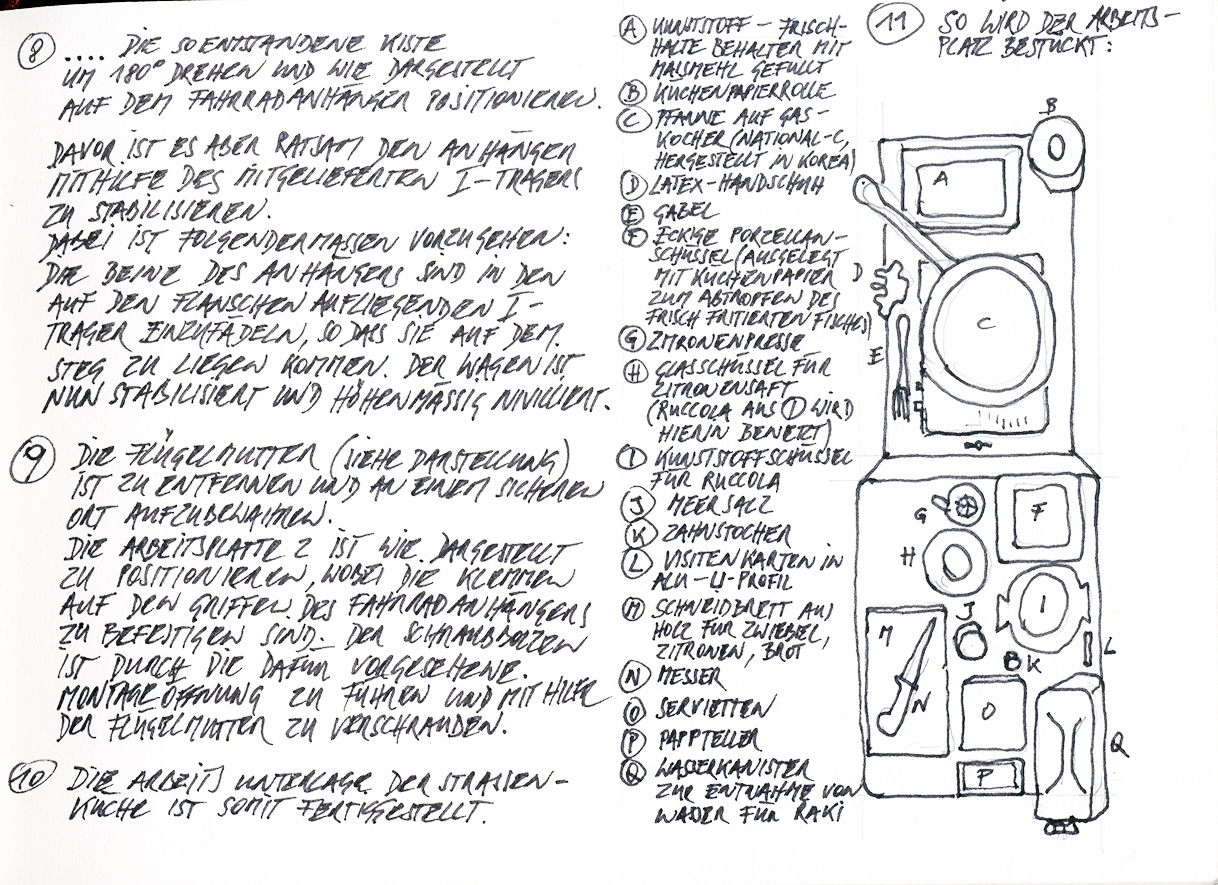 8 .... DIE SO ENTSTANDENE KISTE
UM 180° DREHEN UND WIE DARGESTELLT
AUF DEM FAHRRADANHÄNGER POSITIONIEREN.
DAVOR IST ES ABER RATSAM DEN ANHÄNGER
MITHILFE DES MITGELIEFERTEN I-TRÄGERS
ZU STABILISIEREN.
DABEI IST FOLGENDERMASSEN VORZUGEHEN:
DIE BEINE DES ANHÄNGERS SIND IN DEN
AUF DEN FLANSCHEN AUFLIEGENDEN I-
TRÄGER EINZUFÄDELN, SO DASS SIE AUF DEM
STEG ZU LIEGEN KOMMEN. DER WAGEN IST
NUN STABILISIERT UND HÖHENMÄSSIG NIVILLIERT.
9 DIE FLÜGELMUTTER (SIEHE DARSTELLUNG)
IST ZU ENTFERNEN UND AN EINEM SICHEREN
ORT AUFZUBEWAHREN.
DIE ARBEITSPLATTE 2 IST WIE DARGESTELLT
ZU POSITIONIEREN, WOBEI DIE KLEMMEN
AUF DEN GRIFFEN DES FAHRRADANHÄNGERS
ZU BEFESTIGEN SIND. DER SCHRAUBBOLZEN
IST DURCH DIE DAFÜR VORGESEHENE
MONTAGEÖFFNUNG ZU FÜHREN UND MIT HILFE
DER FLÜGELMUTTER ZU VERSCHRAUBEN.
10 DIE ARBEITSUNTERLAGE DER STRASSEN-
KÜCHE IST SOMIT FERTIGGESTELLT.
A KUNSTSTOFF-FRISCH-
HALTE BEHÄLTER MIT
MAISMEHL GEFÜLLT
B KÜCHENPAPIERROLLE
C PFANNE AUF GAS-
KOCHER (NATIONAL-C,
HERGESTELLT IN KOREA)
D LATEX-HANDSCHUH
E GABEL
F ECKIGE PORZELLAN-
SCHÜSSEL (AUSGELEGT
MIT KÜCHENPAPIER
ZUM ABTROPFEN DES
FRISCH FRITIERTEN FISCHES)
G ZITRONENPRESSE
H GLASSCHÜSSEL FÜR
ZITRONENSAFT
(RUCCOLA AUS I WIRD
HIERIN BENETZT)
I KUNSTSTOFFSCHÜSSEL
FÜR RUCCOLA
J MEERSALZ
K ZAHNSTOCHER
L VISITENKARTEN IN
ALU-U-PROFIL
M SCHNEIDBRETT AUS
HOLZ FÜR ZWIEBEL,
ZITRONEN, BROT
N MESSER
O SERVIETTEN
P PAPPTELLER
Q WASSERKANISTER
ZUR ENTNAHME VON
WASSER FÜR RAKI
11 SO WIRD DER ARBEITS-
PLATZ BESTÜCKT:
B
A
D
C
E
G
F
H
I
J
M
K
L
N
O
Q
P